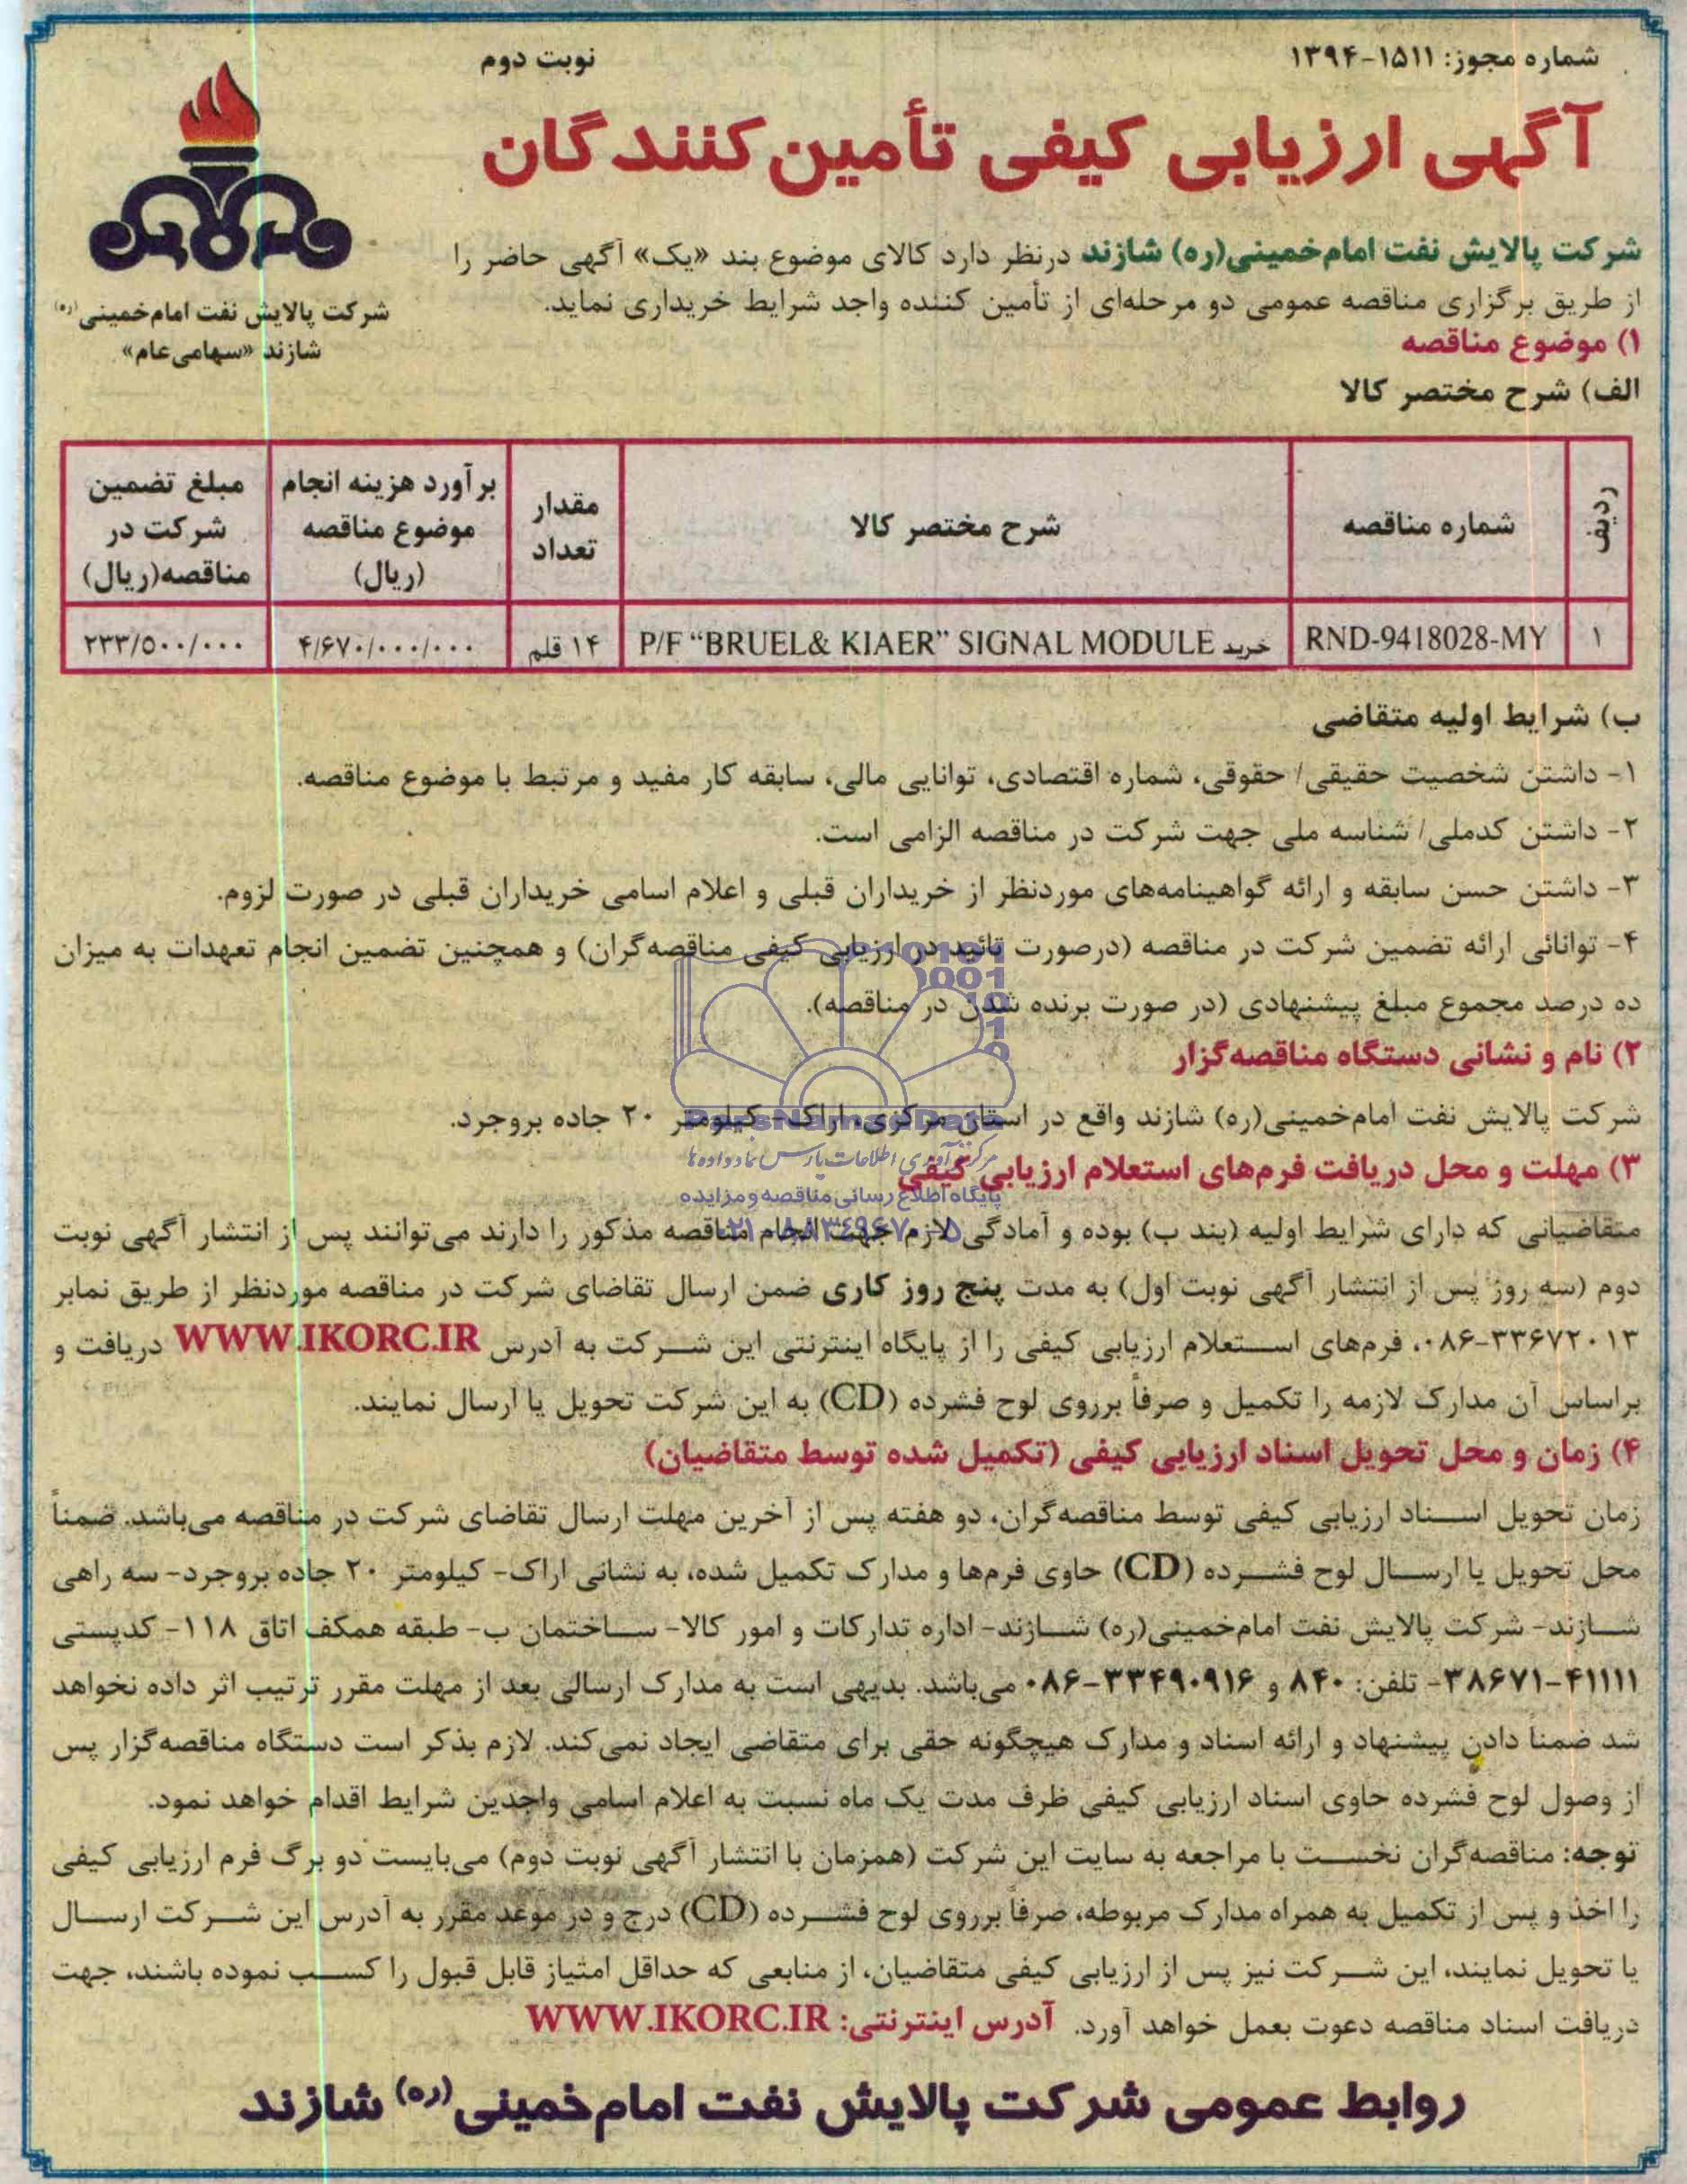 شماره مجوز: ۱۵۱۱-۱۳۹۴
نوبت دوم
آگهی ارزیابی کیفی تأمین‌کنندگان
شرکت پالایش نفت امام‌خمینی(ره) شازند
«سهامی‌عام»
شرکت پالایش نفت امام‌خمینی(ره) شازند درنظر دارد کالای موضوع بند «یک» آگهی حاضر را
از طریق برگزاری مناقصه عمومی دو مرحله‌ای از تأمین کننده واجد شرایط خریداری نماید.
۱) موضوع مناقصه
الف) شرح مختصر کالا
ردیف | شماره مناقصه | شرح مختصر کالا | مقدار تعداد | برآورد هزینه انجام موضوع مناقصه (ریال) | مبلغ تضمین شرکت در مناقصه(ریال)
۱ | RND-9418028-MY | خرید P/F “BRUEL& KIAER” SIGNAL MODULE | ۱۴ قلم | ۴/۶۷۰/۰۰۰/۰۰۰ | ۲۳۳/۵۰۰/۰۰۰
ب) شرایط اولیه متقاضی
۱- داشتن شخصیت حقیقی/ حقوقی، شماره اقتصادی، توانایی مالی، سابقه کار مفید و مرتبط با موضوع مناقصه.
۲- داشتن کدملی/ شناسه ملی جهت شرکت در مناقصه الزامی است.
۳- داشتن حسن سابقه و ارائه گواهینامه‌های موردنظر از خریداران قبلی و اعلام اسامی خریداران قبلی در صورت لزوم.
۴- توانائی ارائه تضمین شرکت در مناقصه (درصورت تائید در ارزیابی کیفی مناقصه‌گران) و همچنین تضمین انجام تعهدات به میزان
ده درصد مجموع مبلغ پیشنهادی (در صورت برنده شدن در مناقصه).
۲) نام و نشانی دستگاه مناقصه‌گزار
شرکت پالایش نفت امام‌خمینی(ره) شازند واقع در استان مرکزی، اراک- کیلومتر ۲۰ جاده بروجرد.
ParsNamadData
مرکز فرآوری اطلاعات پارس نماد داده‌ها
۳) مهلت و محل دریافت فرم‌های استعلام ارزیابی کیفی
پایگاه اطلاع رسانی مناقصه و مزایده
۰۲۱-۸۸۳۴۹۶۷۰-۵
متقاضیانی که دارای شرایط اولیه (بند ب) بوده و آمادگی لازم جهت انجام مناقصه مذکور را دارند می‌توانند پس از انتشار آگهی نوبت
دوم (سه روز پس از انتشار آگهی نوبت اول) به مدت پنج روز کاری ضمن ارسال تقاضای شرکت در مناقصه موردنظر از طریق نمابر
۰۸۶-۳۳۶۷۲۰۱۳، فرم‌های استعلام ارزیابی کیفی را از پایگاه اینترنتی این شرکت به آدرس WWW.IKORC.IR دریافت و
براساس آن مدارک لازمه را تکمیل و صرفاً برروی لوح فشرده (CD) به این شرکت تحویل یا ارسال نمایند.
۴) زمان و محل تحویل اسناد ارزیابی کیفی (تکمیل شده توسط متقاضیان)
زمان تحویل اسناد ارزیابی کیفی توسط مناقصه‌گران، دو هفته پس از آخرین مهلت ارسال تقاضای شرکت در مناقصه می‌باشد. ضمناً
محل تحویل یا ارسال لوح فشرده (CD) حاوی فرم‌ها و مدارک تکمیل شده، به نشانی اراک- کیلومتر ۲۰ جاده بروجرد- سه راهی
شازند- شرکت پالایش نفت امام‌خمینی(ره) شازند- اداره تدارکات و امور کالا- ساختمان ب- طبقه همکف اتاق ۱۱۸- کدپستی
۳۸۶۷۱-۴۱۱۱۱- تلفن: ۸۴۰ و ۰۸۶-۳۳۴۹۰۹۱۶ می‌باشد. بدیهی است به مدارک ارسالی بعد از مهلت مقرر ترتیب اثر داده نخواهد
شد ضمناً دادن پیشنهاد و ارائه اسناد و مدارک هیچگونه حقی برای متقاضی ایجاد نمی‌کند. لازم بذکر است دستگاه مناقصه‌گزار پس
از وصول لوح فشرده حاوی اسناد ارزیابی کیفی ظرف مدت یک ماه نسبت به اعلام اسامی واجدین شرایط اقدام خواهد نمود.
توجه: مناقصه‌گران نخست با مراجعه به سایت این شرکت (همزمان با انتشار آگهی نوبت دوم) می‌بایست دو برگ فرم ارزیابی کیفی
را اخذ و پس از تکمیل به همراه مدارک مربوطه، صرفاً برروی لوح فشرده (CD) درج و در موعد مقرر به آدرس این شرکت ارسال
یا تحویل نمایند، این شرکت نیز پس از ارزیابی کیفی متقاضیان، از منابعی که حداقل امتیاز قابل قبول را کسب نموده باشند، جهت
دریافت اسناد مناقصه دعوت بعمل خواهد آورد. آدرس اینترنتی: WWW.IKORC.IR
روابط عمومی شرکت پالایش نفت امام‌خمینی(ره) شازند